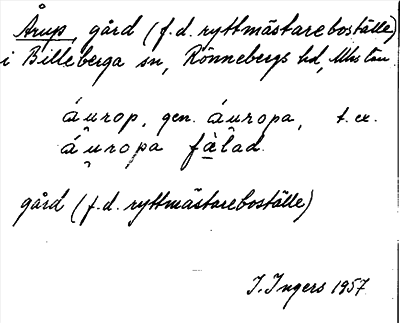 Årup, gård (f.d. ryttmästareboställe)
i Billeberga sn, Rönnebergs hd, Mhs län
áu̯rop, gen. áu̯ropa, t. ex.
áu̯ropa fàlad.
gård (f.d. ryttmästareboställe)
I. Ingers 1957